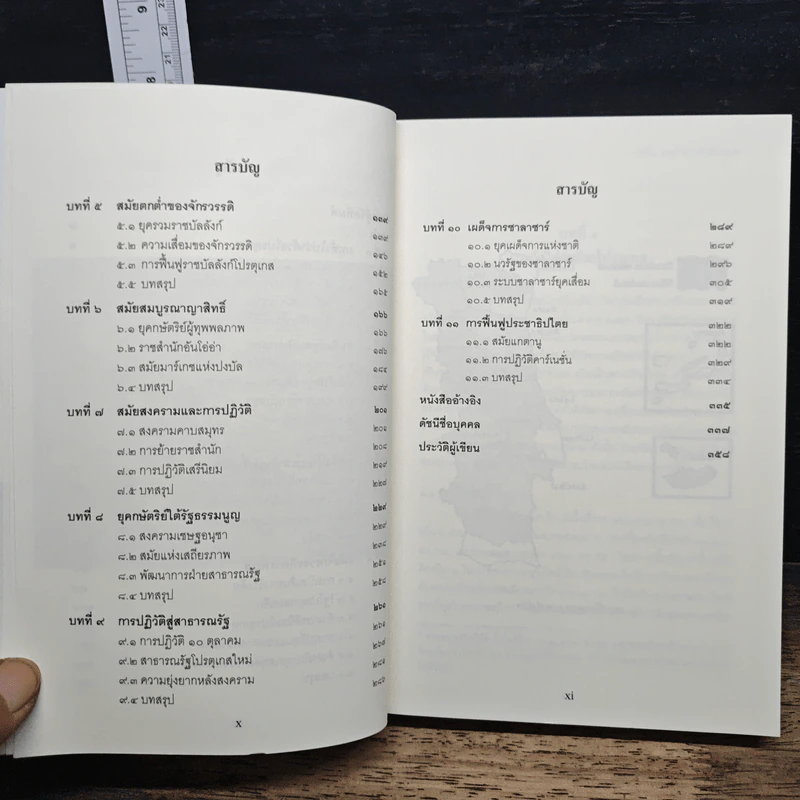 9
8
23
22
21
สารบัญ
บทที่ ๕ สมัยตกต่ำของจักรวรรดิ ๑๓๙
๕.๑ ยุครวมราชบัลลังก์ ๑๓๙
๕.๒ ความเสื่อมของจักรวรรดิ ๑๔๖
๕.๓ การฟื้นฟูราชบัลลังก์โปรตุเกส ๑๕๒
๕.๕ บทสรุป ๑๖๕
บทที่ ๖ สมัยสมบูรณาญาสิทธิ์ ๑๖๖
๖.๑ ยุคกษัตริย์ผู้ทุพพลภาพ ๑๖๖
๖.๒ ราชสำนักอันโอ่อ่า ๑๗๖
๖.๓ สมัยมาร์เกซแห่งปงบัล ๑๘๔
๖.๔ บทสรุป ๑๙๙
บทที่ ๗ สมัยสงครามและการปฏิวัติ ๒๐๑
๗.๑ สงครามคาบสมุทร ๒๐๑
๗.๒ การย้ายราชสำนัก ๒๐๘
๗.๓ การปฏิวัติเสรีนิยม ๒๑๙
๗.๕ บทสรุป ๒๒๗
บทที่ ๘ ยุคกษัตริย์ใต้รัฐธรรมนูญ ๒๒๙
๘.๑ สงครามเชษฐอนุชา ๒๒๙
๘.๒ สมัยแห่งเสถียรภาพ ๒๓๘
๘.๓ พัฒนาการฝ่ายสาธารณรัฐ ๒๕๑
๘.๔ บทสรุป ๒๕๘
บทที่ ๙ การปฏิวัติสู่สาธารณรัฐ ๒๖๑
๙.๑ การปฏิวัติ ๑๐ ตุลาคม ๒๖๑
๙.๒ สาธารณรัฐโปรตุเกสใหม่ ๒๖๗
๙.๓ ความยุ่งยากหลังสงคราม ๒๘๑
๙.๔ บทสรุป ๒๘๖
x
สารบัญ
บทที่ ๑๐ เผด็จการซาลาซาร์ ๒๘๙
๑๐.๑ ยุคเผด็จการแห่งชาติ ๒๘๙
๑๐.๒ นวรัฐของซาลาซาร์ ๒๙๖
๑๐.๓ ระบบซาลาซาร์ยุคเสื่อม ๓๐๕
๑๐.๕ บทสรุป ๓๑๙
บทที่ ๑๑ การฟื้นฟูประชาธิปไตย ๓๒๒
๑๑.๑ สมัยแกตานู ๓๒๒
๑๑.๒ การปฏิวัติคาร์เนชั่น ๓๒๙
๑๑.๓ บทสรุป ๓๓๔
หนังสืออ้างอิง ๓๓๕
ดัชนีชื่อบุคคล ๓๓๗
ประวัติผู้เขียน ๓๕๘
xi